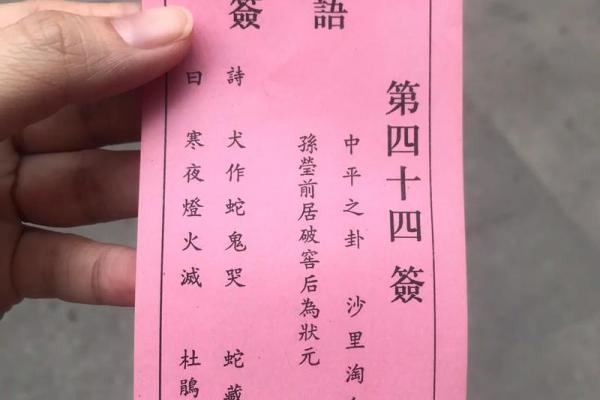 簽語
第四十四簽
中平之卦 沙里淘
孫瑩前居破窖后為狀元
詩 犬作蛇鬼哭 蛇藏
曰 寒夜燈火滅 杜鵑